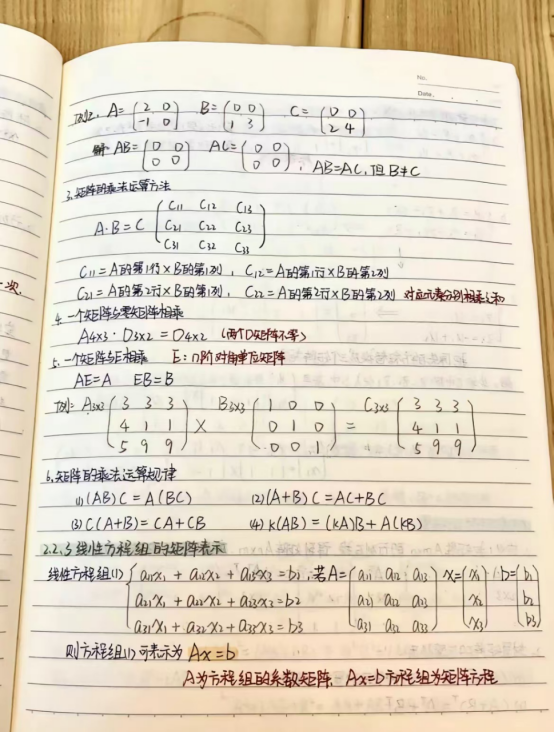 No.
Date.
例2. A=(2 0 -1 0) B=(0 0 1 3) C=(0 0 2 4)
解 AB=(0 0 0 0) AC=(0 0 0 0), AB=AC,但B≠C
3.矩阵的乘法运算方法
A·B=C (C11 C12 C13
C21 C22 C23
C31 C32 C33)
C11=A的第1行×B的第1列, C12=A的第1行×B的第2列
C21=A的第2行×B的第1列, C22=A的第2行×B的第2列 对应元素分别相乘之和
一次.
4.一个矩阵与零矩阵相乘
A4x3·O3x2=O4x2 (两个O矩阵不等)
5.一个矩阵与E相乘 E:n阶对角单位矩阵
AE=A EB=B
例: A3x3 (3 3 3 B3x3 (1 0 0 C3x3 (3 3 3
4 1 1 × 0 1 0 = 4 1 1
5 9 9) 0 0 1) 5 9 9)
6.矩阵的乘法运算规律
(1)(AB)C=A(BC) (2)(A+B)C=AC+BC
(3)C(A+B)=CA+CB (4)k(AB)=(kA)B+A(kB)
2.2.3线性方程组的矩阵表示
线性方程组(1) {a11x1+a12x2+a13x3=b1,若A=(a11 a12 a13 x=(x1 b=(b1
a21x1+a22x2+a23x3=b2 a21 a22 a23 x2 b2
a31x1+a32x2+a33x3=b3 a31 a32 a33) x3) b3)
则方程组(1)可表示为Ax=b
A为方程组的系数矩阵. Ax=b方程组为矩阵方程